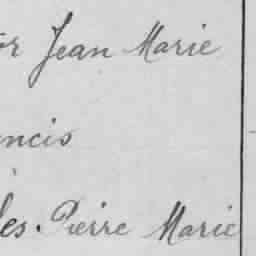 or Jean Marie
ncis
les. Pierre Marie